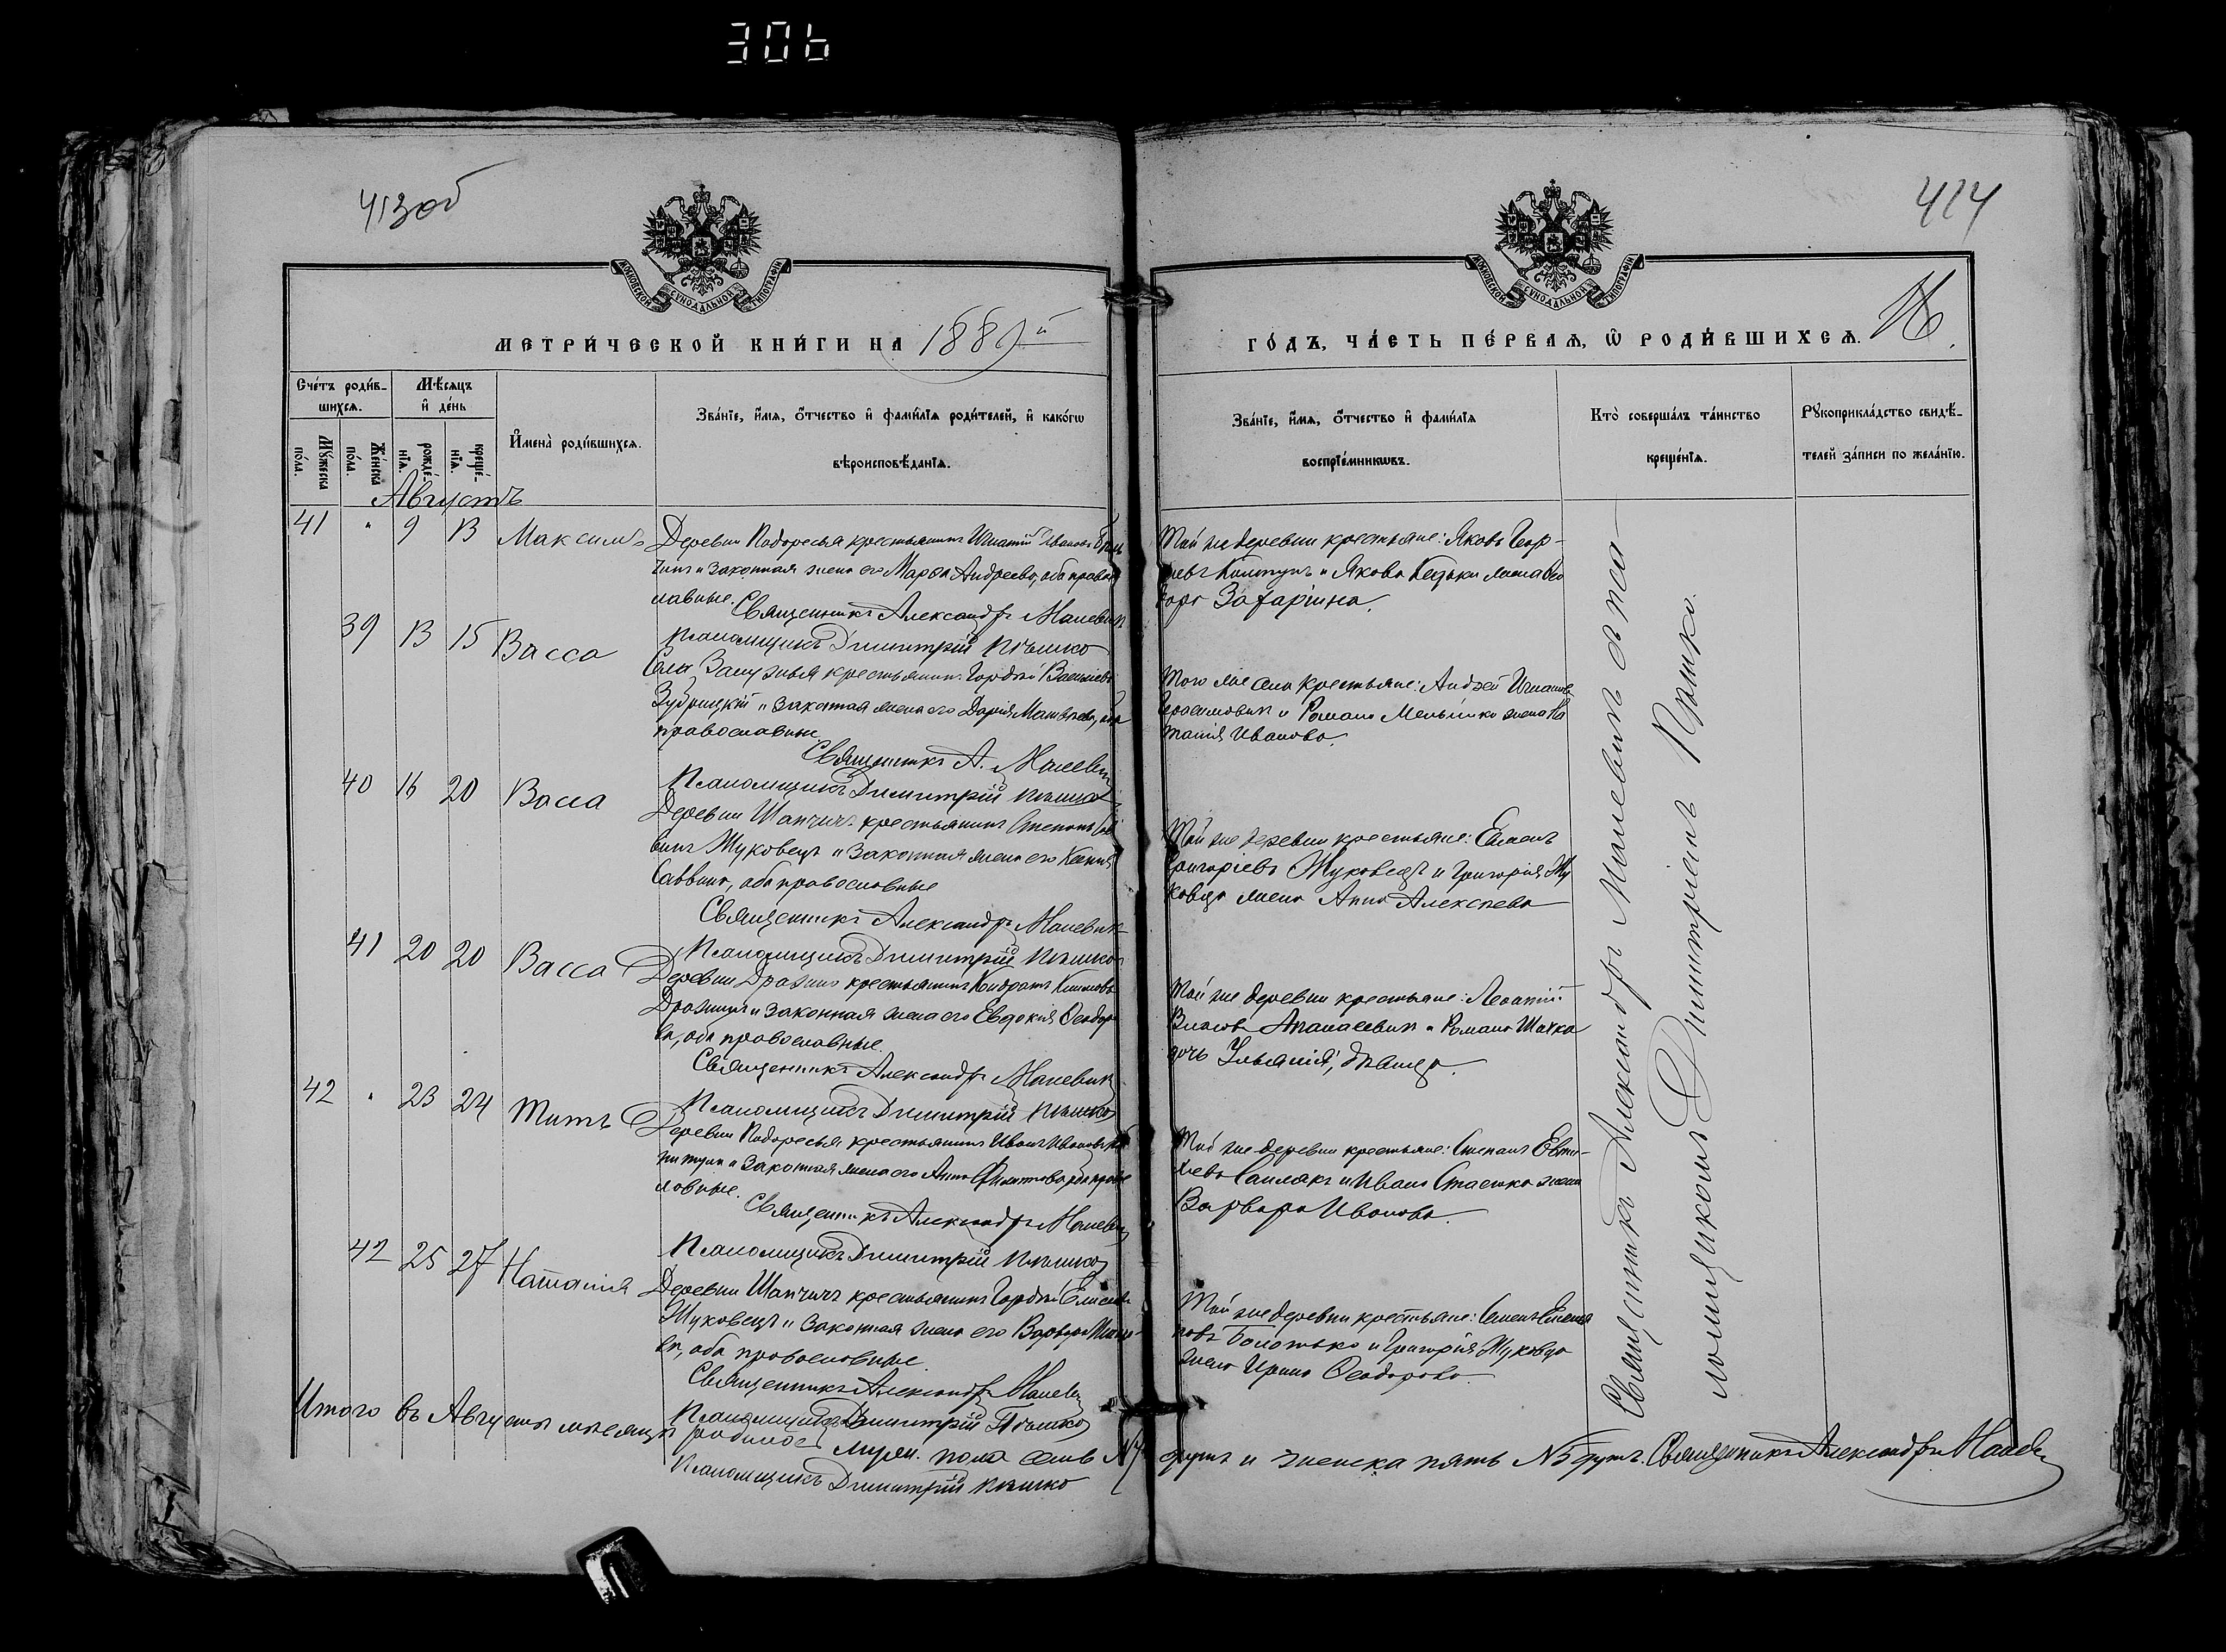 306
413об
414
МОСКОВСКОЙ СѴНОДАЛЬНОЙ ТИПОГРАФІИ
МОСКОВСКОЙ СѴНОДАЛЬНОЙ ТИПОГРАФІИ
МЕТРИ́ЧЕСКОЙ КНИ́ГИ НА 1889й
ГО́ДЪ, ЧА́СТЬ ПЕ́РВАЯ, Ѡ҆ РОДИ́ВШИХСЯ.
Сче́тъ роди́в-
шихся.
Мꙋ́жеска
по́ла.
Же́нска
по́ла.
Мѣ́сяцъ
и҆ де́нь
рожде́-
нїѧ.
креще́-
нїѧ.
И҆мена̀ роди́вшихся.
Зва́нїе, и҆́мя, ѻ҆́тчество и҆ фами́лїя роди́телей, и҆ како́гѡ
вѣроисповѣ́данїя.
Зва́нїе, и҆́мя, ѻ҆́тчество и҆ фами́лїя
воспрїе́мникѡвъ.
Кто̀ соверша́лъ та́инство
креще́нїя.
Рꙋкоприкла́дство свидѣ́-
телей за́писи по жела́нїю.
Августъ
41 " 9 13 Максимъ
Деревни Подоресья крестьянинъ Игнатій Ивановъ
и законная жена его Марѳа Андреева, оба право-
славные.
Священникъ Александръ Малевич
Псаломщикъ Димитрій Пѣшко
Той же деревни крестьяне: Яковъ
и Якова жена
Захаріина.
39 13 15 Васса
Села Залужья крестьянинъ Гордѣй Васильевъ
Зубрицкій и законная жена его Дарія Матвѣева, оба
православные.
Священникъ А. Малевич
Псаломщикъ Димитрій Пѣшко
Того же села крестьяне: Андрей Игнатов
Герасимович и Романа Мельника жена На
талія Иванова.
40 16 20 Васса
Деревни Шапчичъ крестьянинъ Степанъ Сав
винъ Жуковецъ и законная жена его Ксенія
Саввина, оба православные
Священникъ Александръ Малевич
Псаломщикъ Димитрій Пѣшко
Той же деревни крестьяне:
Григоріевъ Жуковецъ и Григорія Жу
ковца жена Анна Алексѣева
41 20 20 Васса
Деревни Дражно крестьянинъ Кондратъ Климовъ
и законная жена его Евдокія Ѳеодоро
ва, оба православные.
Священникъ Александръ Малевич
Псаломщикъ Димитрій Пѣшко
Той же деревни крестьяне: Леонтій
Власовъ Апанасевич и Романа
дочь Ульянія, дѣвица.
42 " 23 24 Титъ
Деревни Подоресья крестьянинъ Иванъ Ивановъ
и законная жена его Анна Филиппова, оба право
славные.
Священникъ Александръ Малевич
Псаломщикъ Димитрій Пѣшко
Той же деревни крестьяне: Степанъ Евти-
хіевъ и Ивана Стасюка жена
Варвара Иванова.
42 25 27 Наталія
Деревни Шапчичъ крестьянинъ Гордѣй
Жуковецъ и законная жена его Варвара
ва, оба православные.
Священникъ Александръ Малевич
Псаломщикъ Димитрій Пѣшко
Той же деревни крестьяне: Семенъ
Болотько и Григорія Жуковца
жена Ирина Ѳеодорова.
Священникъ Александръ Малевич съ пса-
ломщикомъ Димитріемъ Пѣшко.
Итого въ Августѣ мѣсяцѣ родилось муж. пола семь №7 душъ и женска пять №5 душъ. Священникъ Александръ Малевич
Псаломщикъ Димитрій Пѣшко